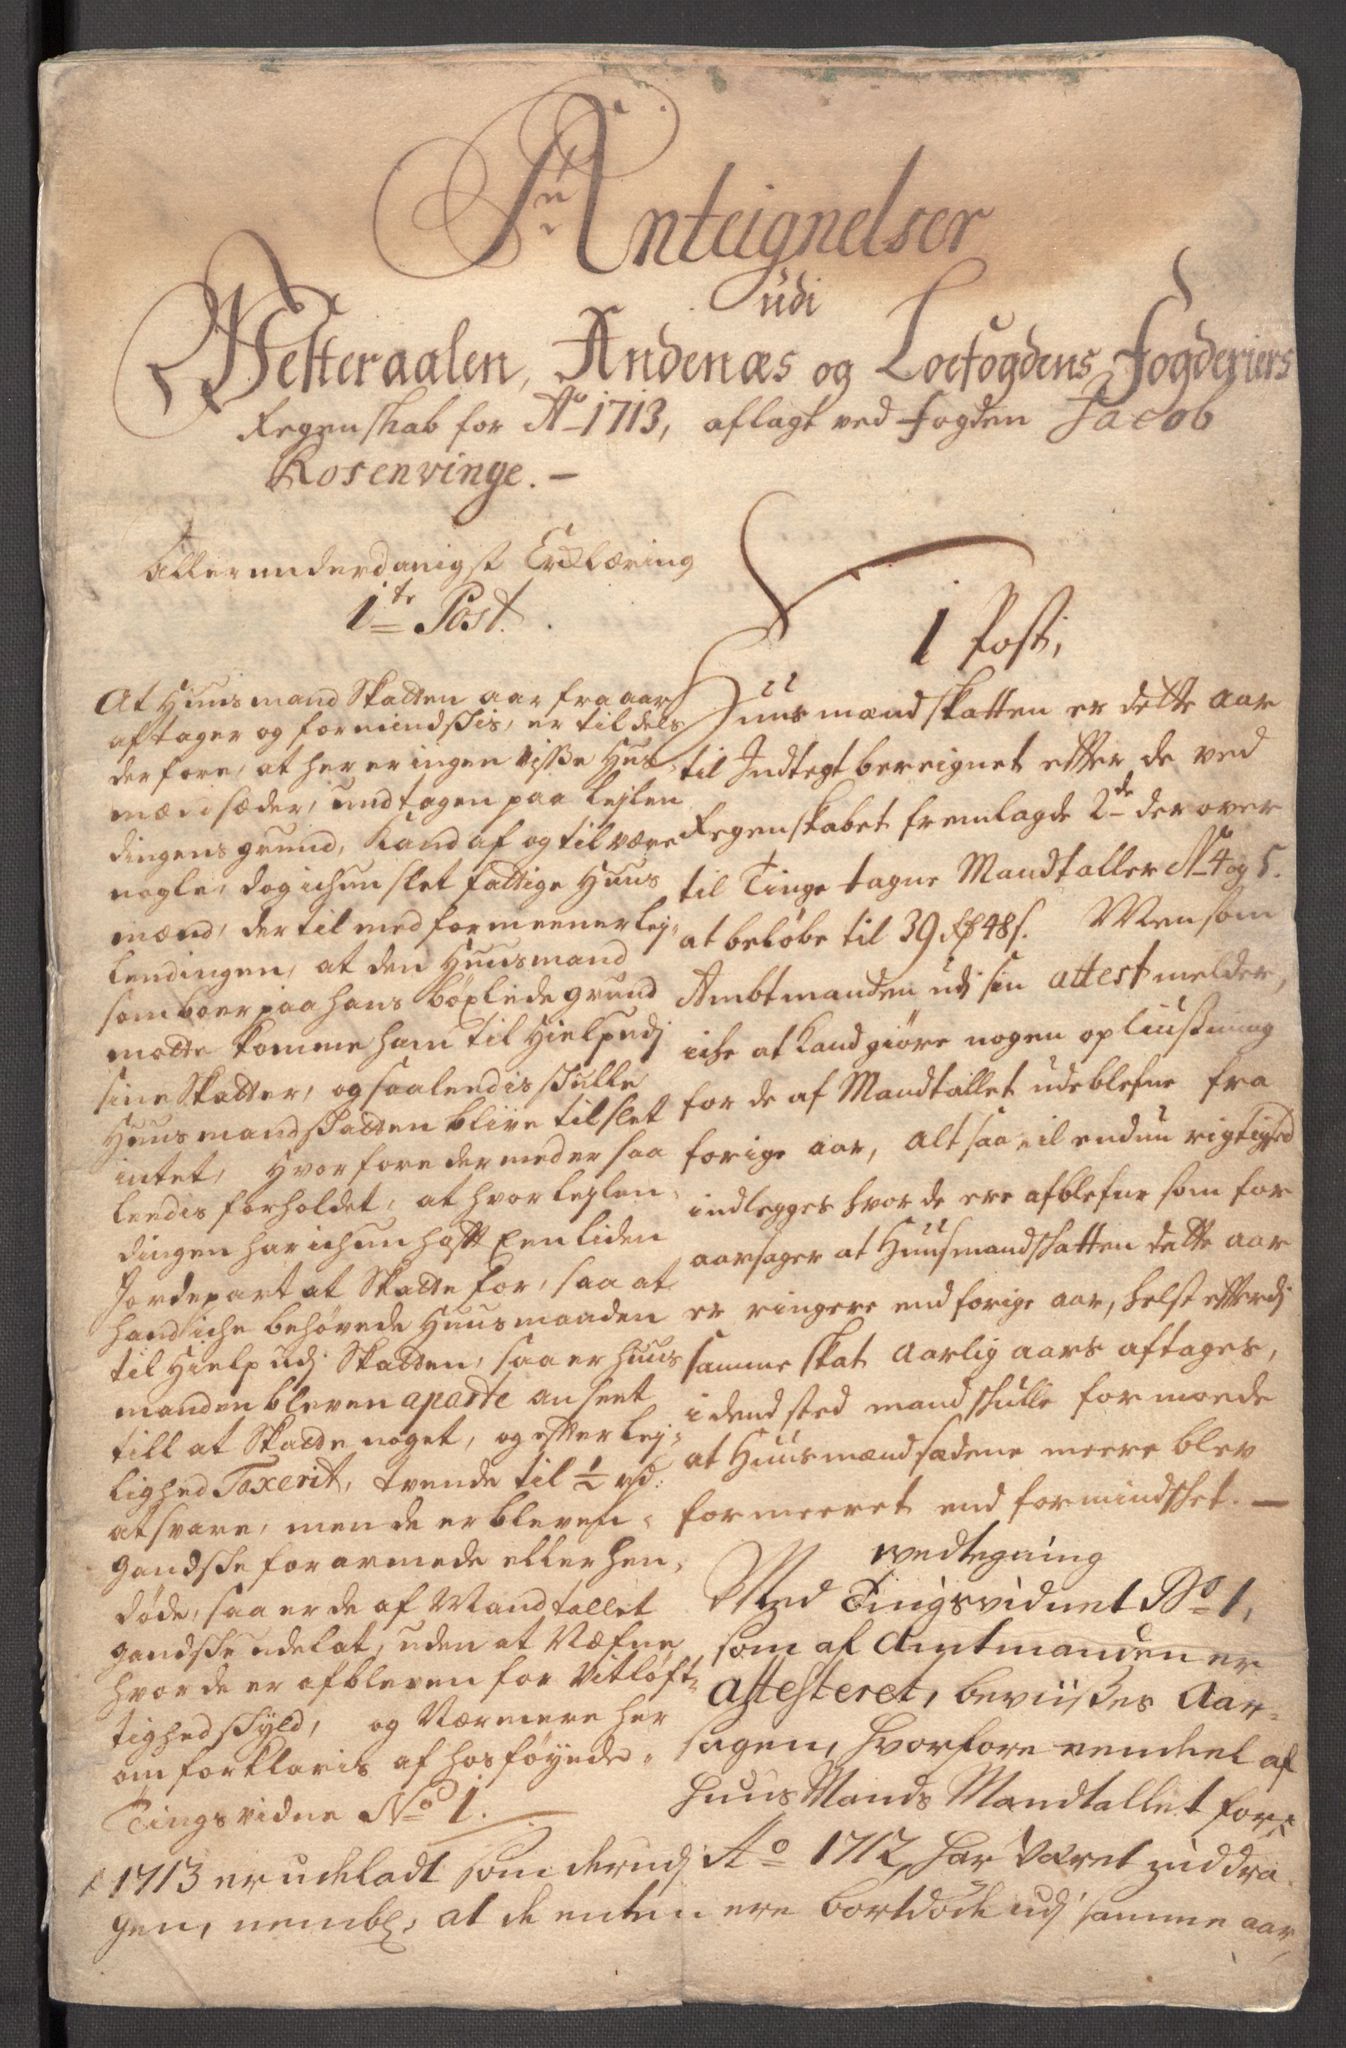 Anteignelser
udi
Westeraalen, Andenæs og Loefogdens Fogderiers
Regenskab for Ao 1713, aflagt ved fogden Jacob
Rosenvinge. —
Allerunderdanigst Erklæring
1te Post.
At Huusmand Skatten aar fra aar
aftager og formindskis, er til dels
derfore, at her er ingen visse Hus-
mænd sæder, undtagen paa lejlen
dingens grund, kand af og til være
nogle, dog ichun slet fattige Huus
mænd, der til med formeener lej-
lendingen, at den Huusmand
som boer paa hans böxlede grund
motte komme ham til Hielp udj
sine Skatter, og saaledis skulle
Huusmandskatten blive til slet
intet, Hvorfore dermed er saa
ledis forholdet, at hvor lejlen-
dingen har ichun hafft Een liden
Jordepart at Skatte for, saa at
hand iche behøvede Huusmanden
til Hielp udj Skatten, saa er huus
manden bleven aparte anseet
till at Skatte noget, og effter lej-
lighed Taxerit, trende til ½ rd.
at svare, men de er bleven
gandske forarmede eller hen-
døde, saa er de af Mandtallet
gandske udelat, uden at Næfne
hvor de er afbleven for Vitløft-
tighed skyld, og Nærmere her
om forklaris af hosføyede
Tingsvidne No 1.
1 Post,
Huusmændskatten er dette Aar
til Indtegt bereignet effter de ved
Regenskabet fremlagde 2de derover
til Tinge tagne Mandtaller N 4 og 5.
at beløbe til 39 Rd 48 s. Men som
Ambtmanden udj sin attest melder,
iche at kand giøre nogen opliusning
for de af Mandtallet udeblefne fra
forige aar, alt saa vil endnu rigtighed
indlegges hvor de ere afblefne som for
aarsager at Huusmandskatten dette aar
er ringere end forige aar, helst efterdj
samme skat Aarlig aars aftages,
i dend sted mand skulle formoede
at Huusmændsædene meere blev
formeeret end formindsket. —
Wedtegning
Med Tingsvidnet No 1,
som af Amtmanden er
attesteret, beviises Aar-
sagen, hvorfore een deel af
HuusMands Mandtallet for
1713 er udeladt som derudj Ao 1712 har været inddra
gen, nembl. at de enten ere bortdøde udj samme aar,